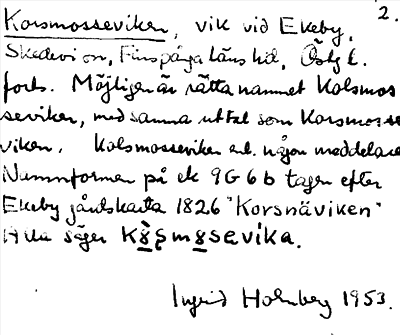 2.
Korsmosseviken, vik vid Ekeby,
Skedevi sn, Finspånga läns hd, Östg l.
forts. Möjligen är rätta namnet Kolsmos
seviken, med samma uttal som Korsmosse
viken. Kolsmosseviken enl. någon meddelare
Namnformen på ek 9G 6b tagen efter
Ekeby gårdskarta 1826 "Korsnäviken"
Alla säger
Ingrid Holmberg 1953.